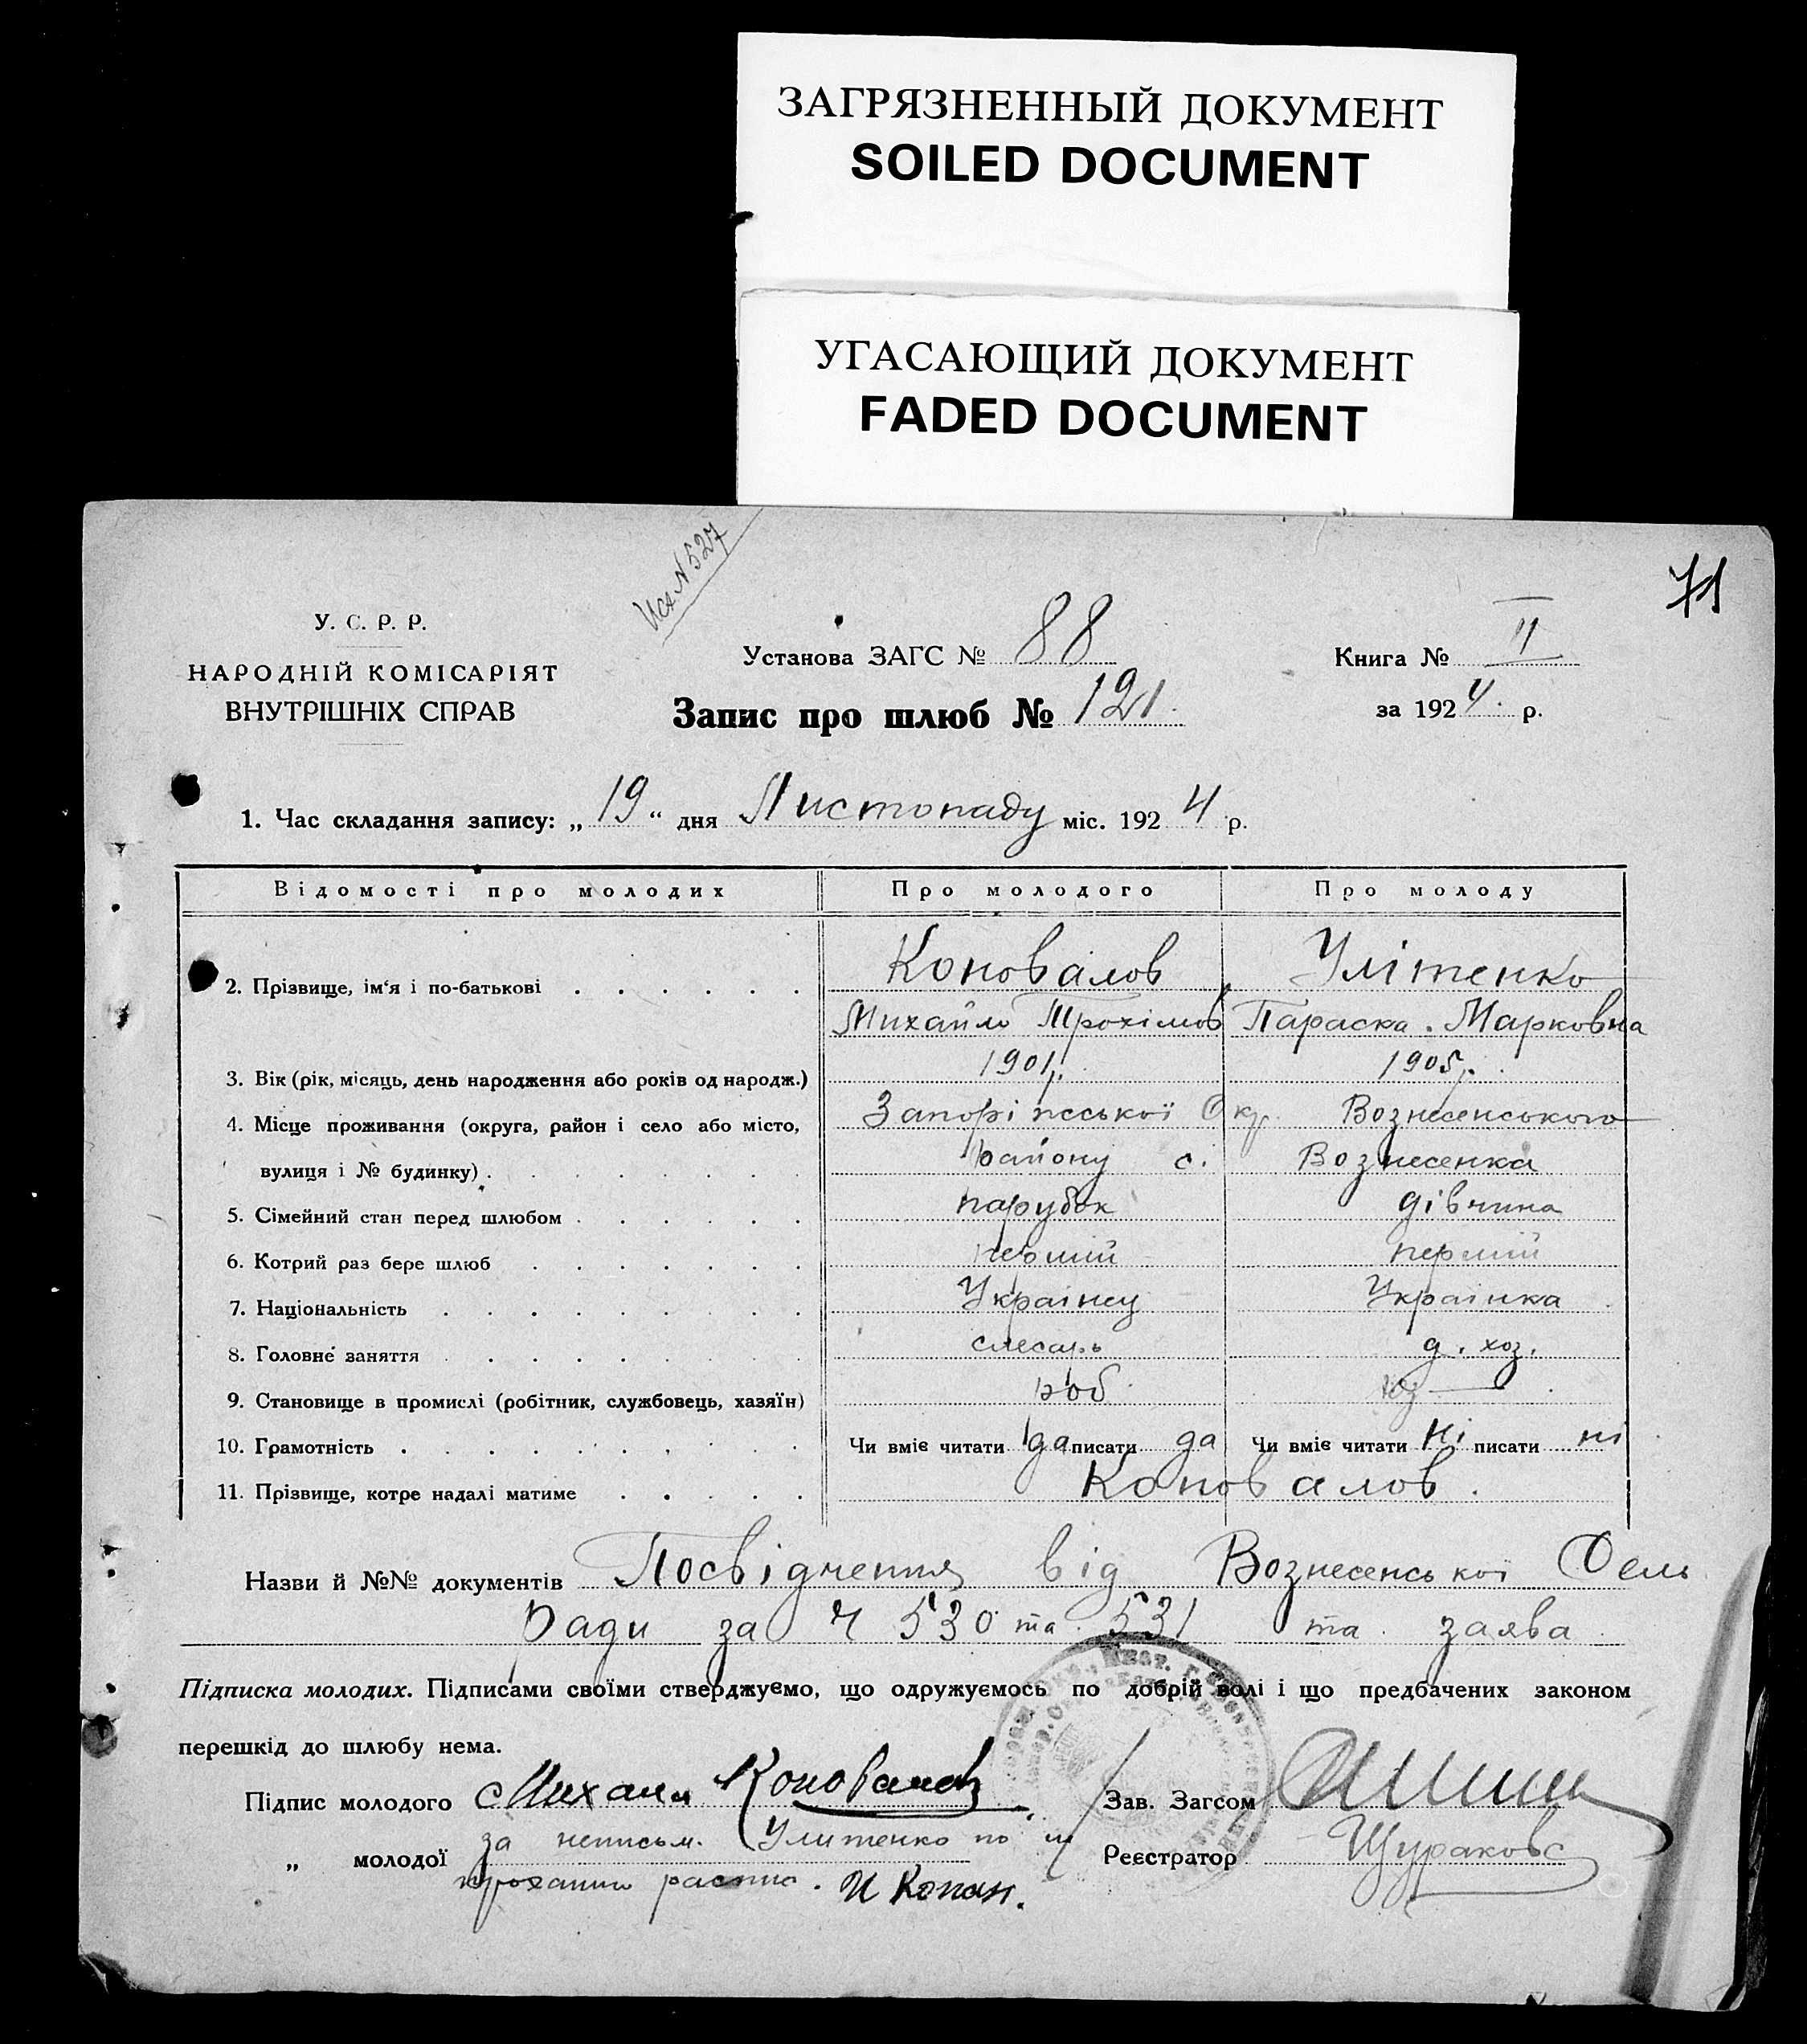 ЗАГРЯЗНЕННЫЙ ДОКУМЕНТ
SOILED DOCUMENT
УГАСАЮЩИЙ ДОКУМЕНТ
FADED DOCUMENT
71
Исх N 527
У. С. Р. Р.
НАРОДНІЙ КОМІСАРІЯТ
ВНУТРІШНІХ СПРАВ
Установа ЗАГС № 88
Книга № II
Запис про шлюб № 121.
за 1924. р.
1. Час складання запису: „19“ дня Листопаду міс. 1924 р.
Відомості про молодих Про молодого Про молоду
2. Прізвище, ім‘я і по-батькові Коновалов Улітенко
Михайло Трохімов Параска. Марковна
3. Вік (рік, місяць, день народження або років од народж.) 1901р. 1905р.
4. Місце проживання (округа, район і село або місто, Запоріжської Окр. Вознесенського
вулиця і № будинку) району с. Вознесенка
5. Сімейний стан перед шлюбом парубок дівчина
6. Котрий раз бере шлюб перший перший
7. Національність Українец Українка
8. Головне заняття слесарь д. хоз.
9. Становище в промислі (робітник, службовець, хазяїн) роб.
10. Грамотність Чи вміє читати да писати да Чи вміє читати ні писати ні
11. Прізвище, котре надалі матиме Коновалов.
Назви й №№ документів Посвідчення від Вознесенської Сель
Ради за Ч 530 та 531 та заява
Підписка молодих. Підписами своїми стверджуємо, що одружуємось по добрій волі і що предбачених законом
перешкід до шлюбу нема.
Підпис молодого Михаил Коновалов Зав. Загсом
за неписьм. Улитенко по ії
„ молодої Реєстратор
проханню распис.